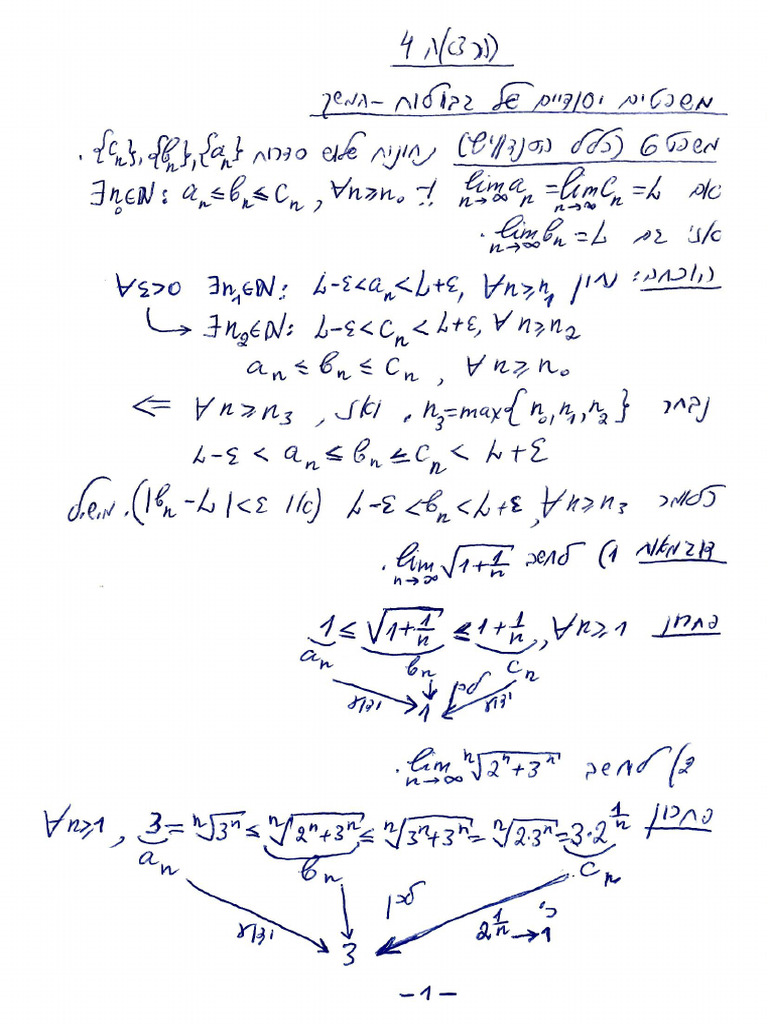 הרצאה 4
משפטים יסודיים של גבולות - המשך
משפט 6 (כלל הסנדוויץ') נתונות שלוש סדרות {a_n}, {b_n}, {c_n}.
אם lim_{n→∞} a_n = lim_{n→∞} c_n = L ו- ∃n_0∈ℕ: a_n ≤ b_n ≤ c_n, ∀n≥n_0
אזי גם lim_{n→∞} b_n = L.
הוכחה: נתון ∀ε>0 ∃n_1∈ℕ: L-ε<a_n<L+ε, ∀n≥n_1
↳ ∃n_2∈ℕ: L-ε<c_n<L+ε, ∀n≥n_2
a_n ≤ b_n ≤ c_n, ∀n≥n_0
נבחר n_3=max{n_0,n_1,n_2}. ואז, ∀n≥n_3 ⇐
L-ε < a_n ≤ b_n ≤ c_n < L+ε
כלומר L-ε<b_n<L+ε, ∀n≥n_3 (או |b_n-L|<ε). מ.ש.ל
דוגמאות 1) לחשב lim_{n→∞} √(1+1/n).
פתרון 1 ≤ √(1+1/n) ≤ 1+1/n, ∀n≥1
a_n b_n c_n
ידוע לכן ידוע
1
2) לחשב lim_{n→∞} ⁿ√(2ⁿ+3ⁿ).
פתרון 3 = ⁿ√(3ⁿ) ≤ ⁿ√(2ⁿ+3ⁿ) ≤ ⁿ√(3ⁿ+3ⁿ) = ⁿ√(2·3ⁿ) = 3·2^{1/n}, ∀n≥1
a_n b_n c_n
ידוע לכן כי 2^{1/n}→1
3
-1-